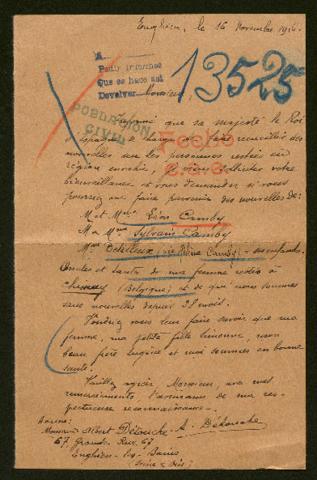 Enghien, le 16 Novembre 191
A
Pedir informes
Que se hace así
Devolver
13525
Monsieur
POBLACION
CIVIL
Informé que sa majesté le Roi
d'Espagne se charge de faire recueillir des
nouvelles sur les personnes restées en
région envahie, je viens solliciter votre
bienveillance et vous demander si vous
pourriez me faire parvenir des nouvelles de:
M et Mme Léon Camby
M et Mme Sylvain Camby
Mme (née Camby) enfants
Oncles et tante de ma femme restés à
Chimay (Belgique) et de qui nous sommes
sans nouvelles depuis
Voudriez vous leur faire savoir que ma
femme, ma petite fille Simonne, mon
beau père Eugène et moi sommes en bonne
santé.
Veuillez agréer, Monsieur, avec mes
remerciements, l'assurance de ma res-
pectueuse reconnaissance.
A. Détouche
Monsieur Albert Détouche
67, Grande Rue, 67
Enghien-les-Bains
(Seine & Oise)